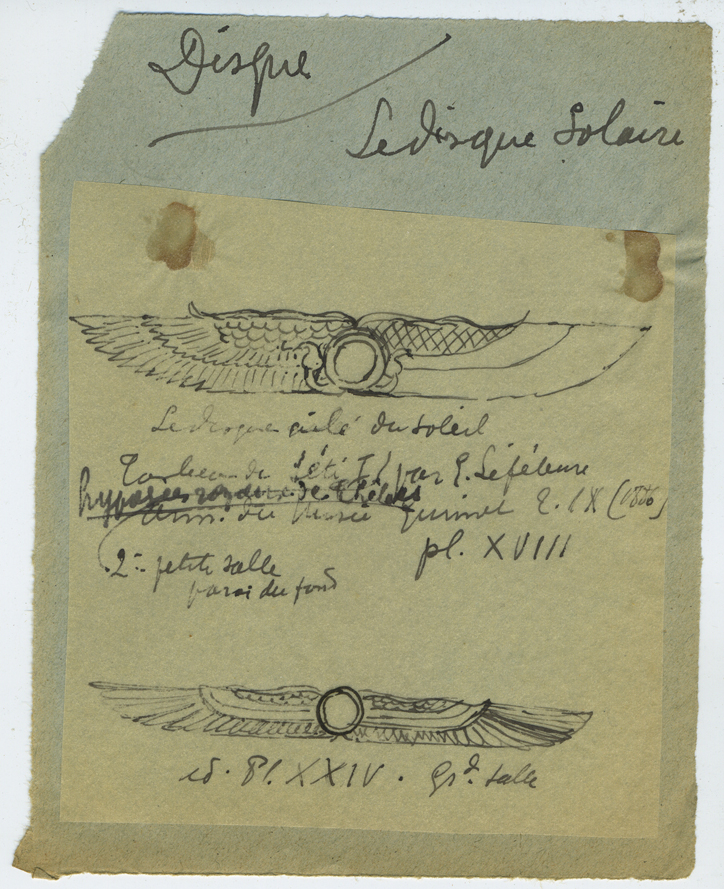 Disque
Le disque Solaire
Le disque ailé du Soleil
Tombeau de Séti I par E. Léfébure
hypogées royaux de Thèbes
Ann. du Musée Guimet T. IX (1886)
pl. XVIII
2e petite salle
paroi du fond
id. Pl. XXIV. Grde salle